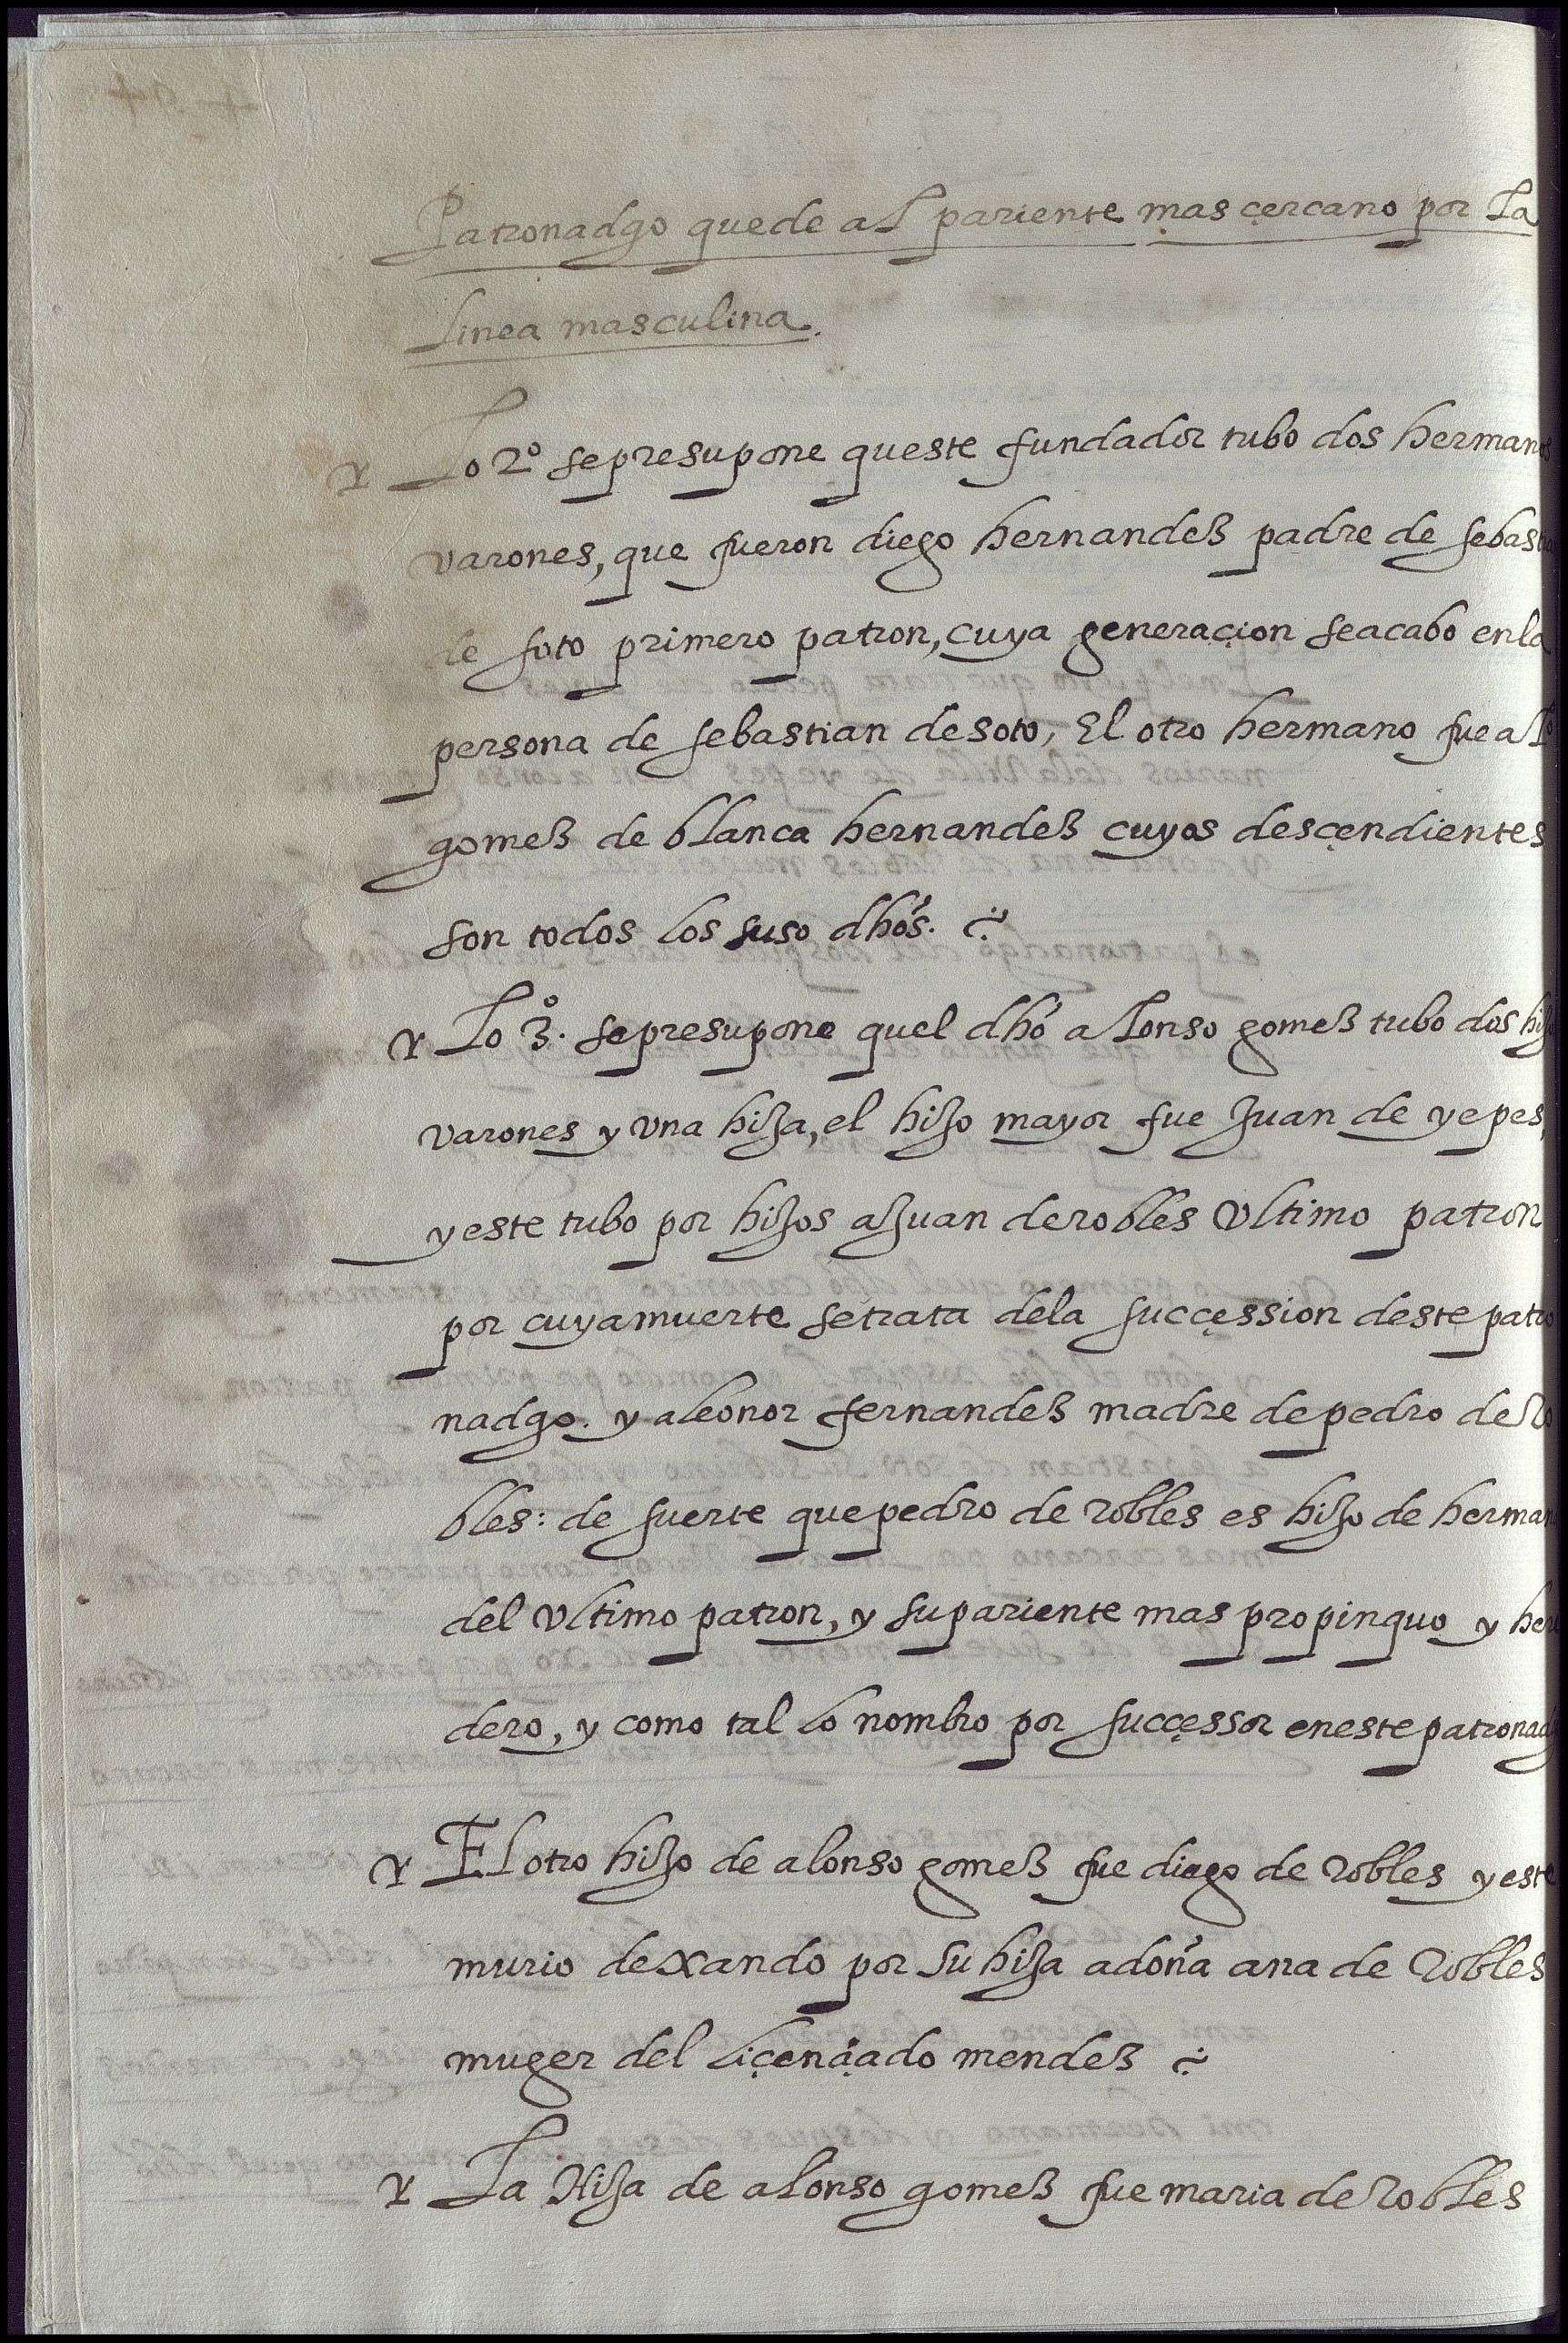 Patronadgo quede al pariente mas çercano por la
linea masculina.
Lo 2º se presupone queste fundador tubo dos hermanos
varones, que fueron diego hernandez padre de sebastia
de soto primero patron, cuya generaçion seacabo enla
persona de sebastian desoto, El otro hermano fue alº
gomez de blanca hernandez cuyos desçendientes
son todos los suso dhos.
Lo 3º. sepresupone quel dho alonso gomez tubo dos hijo
varones y vna hija, el hijo mayor fue Juan de yepes,
y este tubo por hijos aJuan derobles vltimo patron
por cuyamuerte setrata dela succession deste patro
nadgo. y aleonor fernandez madre depedro de Ro
bles: de suerte quepedro de Robles es hijo de herman
del vltimo patron, y supariente mas propinquo y here
dero, y como tal lo nombro por sucçessor eneste patronadg
El otro hijo de alonso gomez fue diego de Robles y este
murio dexando por su hija adoña ana de Robles
muger del liçençiado mendez
La Hija de alonso gomez fue maria de Robles